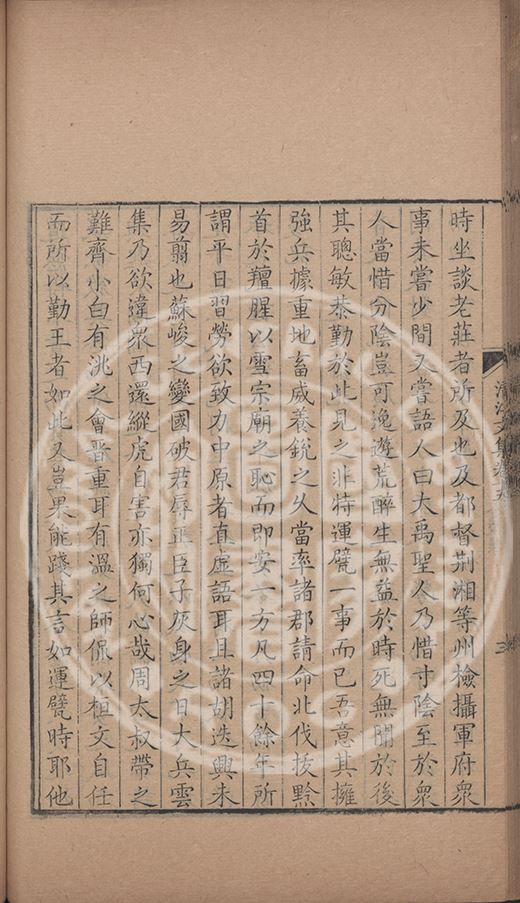 時坐談老莊者所及也及都督荆湘等州檢攝軍府衆
事未嘗少間又嘗語人曰大禹聖人乃惜寸陰至於衆
人當惜分陰豈可逸遊荒醉生無益於時死無聞於後
其聰敏恭勤於此見之非特運甓一事而已吾意其擁
強兵據重地畜威養銳之久當率諸郡請命北伐拔黔
首於羶腥以雪宗廟之恥而即安一方凡四十餘年所
謂平日習勞欲致力中原者直虛語耳且諸胡迭興未
易翦也蘇峻之變國破君辱正臣子灰身之日大兵雲
集乃欲違衆西還縱虎自害亦獨何心哉周太叔帶之
難齊小白有洮之會晉重耳有溫之師侃以桓文自任
而所以勤王者如此又豈果能踐其言如運甓時耶他